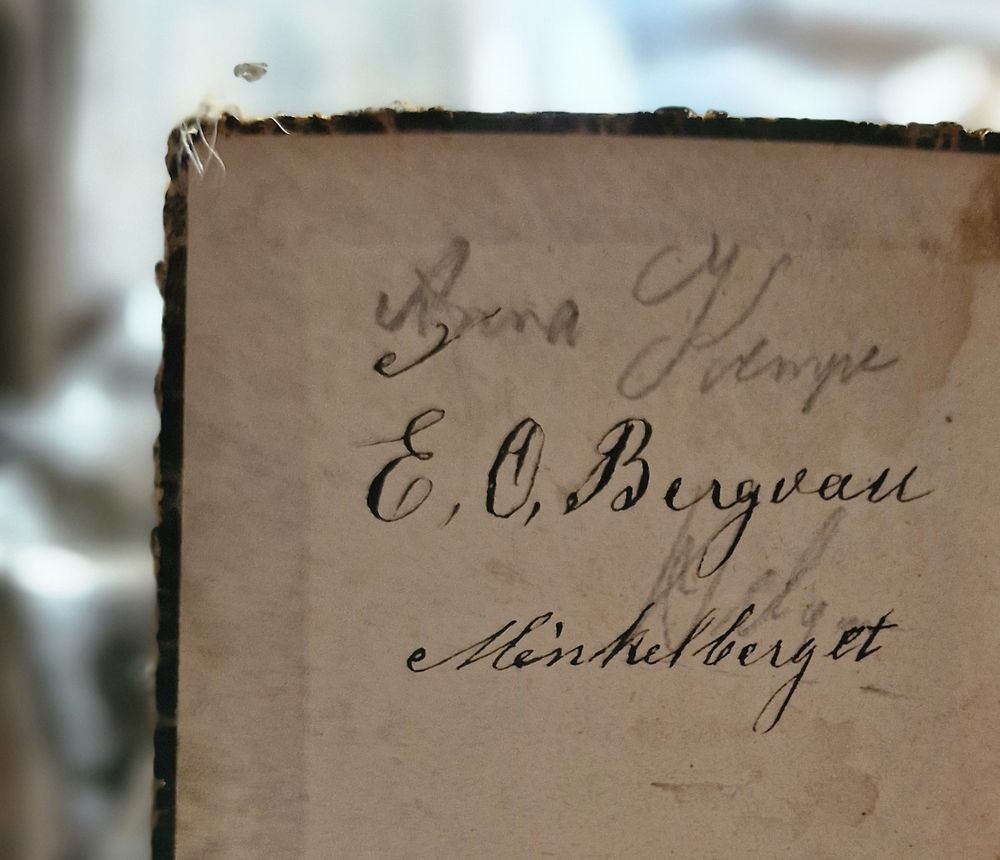 Anna Kempe
E. O. Bergvall
Minkelberget